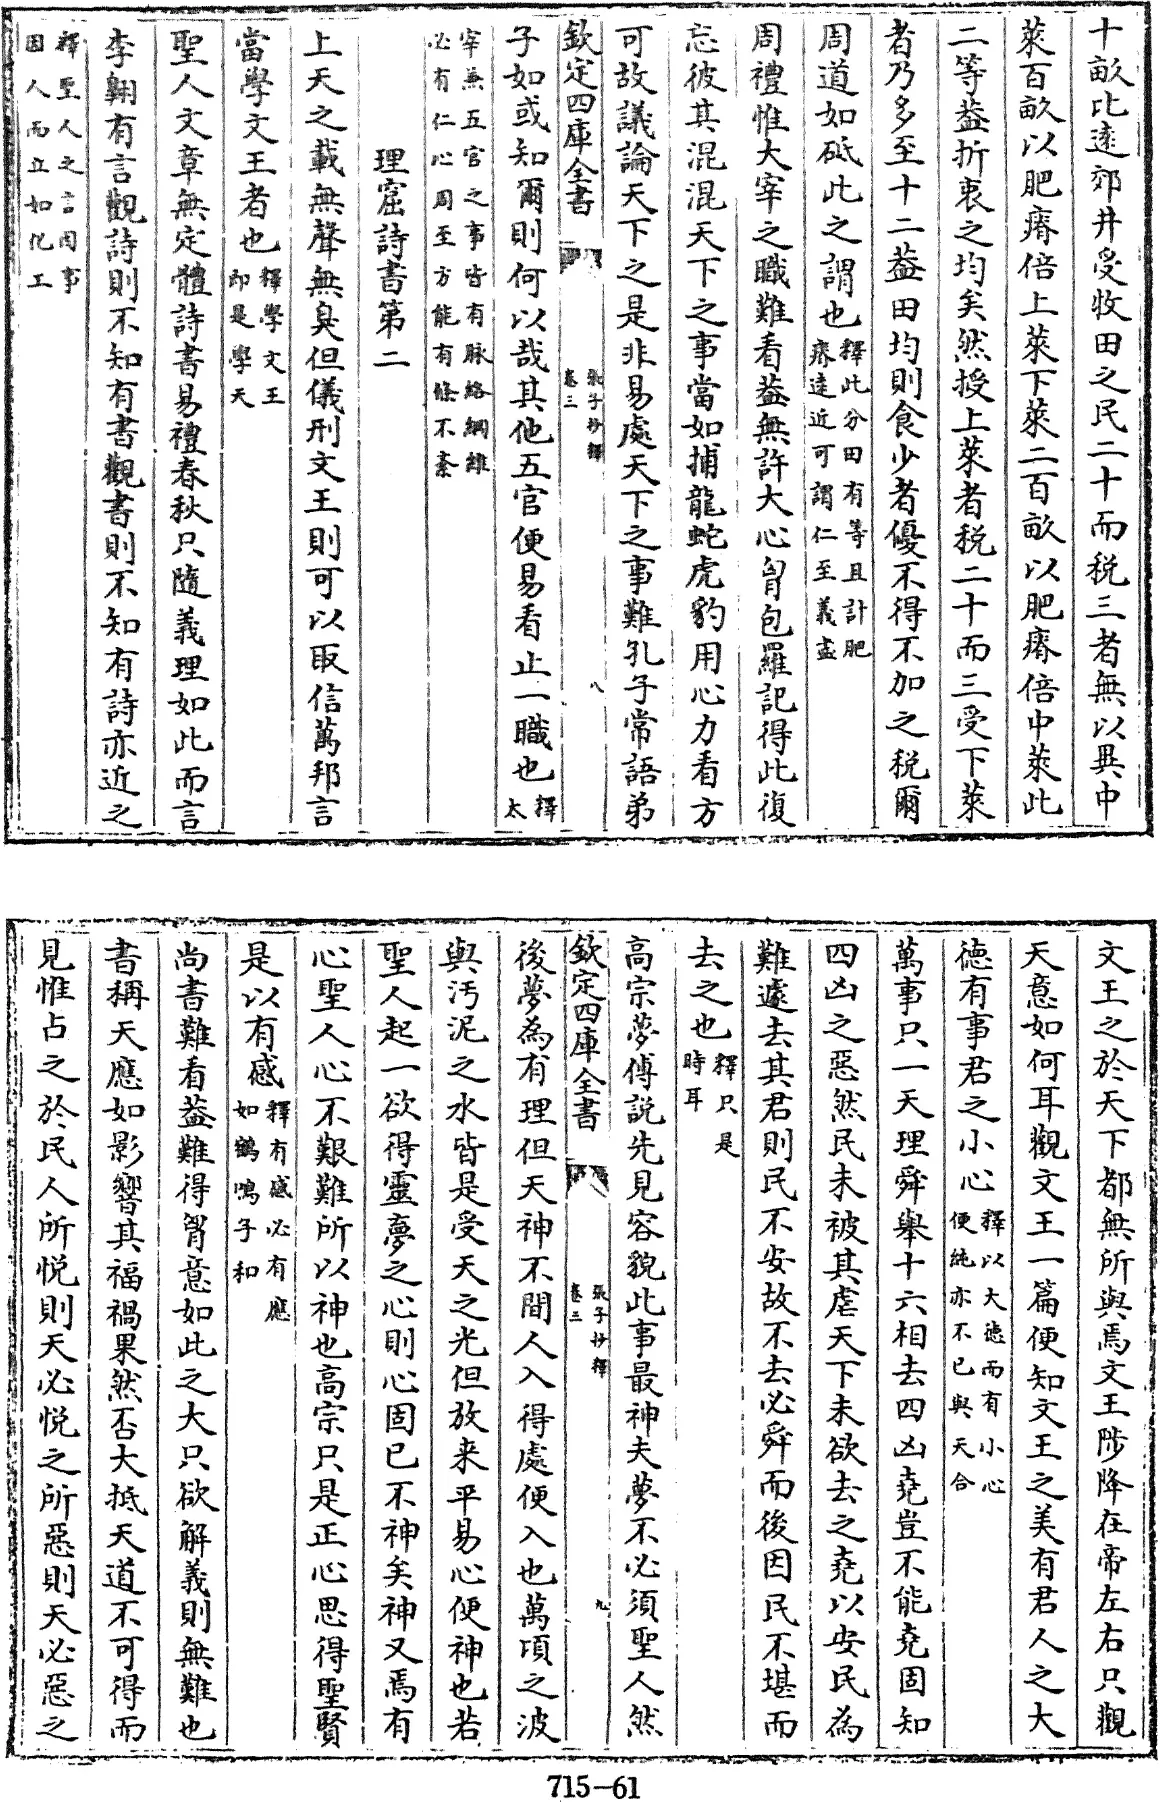 十畝比逺郊井受牧田之民二十而税三者無以異中
萊百畝以肥瘠倍上萊下萊二百畝以肥瘠倍中萊此
二等葢折衷之均矣然授上萊者税二十而三受下萊
者乃多至十二葢田均則食少者優不得不加之税爾
周道如砥此之謂也釋此分田有等且計肥
瘠逺近可謂仁至義盡
周禮惟大宰之職難看葢無許大心胷包羅記得此復
忘彼其混混天下之事當如捕龍蛇虎豹用心力看方
可故議論天下之是非易處天下之事難孔子常語弟
欽定四庫全書
張子抄釋
卷三
八
子如或知爾則何以哉其他五官便易看止一職也釋
太
宰兼五官之事皆有脉絡綱維
必有仁心周至方能有條不紊
理窟詩書第二
上天之載無聲無臭但儀刑文王則可以取信萬邦言
當學文王者也釋學文王
即是學天
聖人文章無定體詩書易禮春秋只隨義理如此而言
李翺有言觀詩則不知有書觀書則不知有詩亦近之
釋聖人之言因事
因人而立如化工
文王之於天下都無所與焉文王陟降在帝左右只觀
天意如何耳觀文王一篇便知文王之美有君人之大
徳有事君之小心釋以大徳而有小心
便純亦不已與天合
萬事只一天理舜舉十六相去四凶堯豈不能堯固知
四凶之惡然民未被其虐天下未欲去之堯以安民為
難遽去其君則民不安故不去必舜而後因民不堪而
去之也釋只是
時耳
高宗夢傅說先見容貌此事最神夫夢不必須聖人然
欽定四庫全書
張子抄釋
卷三
九
後夢為有理但天神不間人入得處便入也萬頃之波
與汚泥之水皆是受天之光但放来平易心便神也若
聖人起一欲得靈夢之心則心固已不神矣神又焉有
心聖人心不艱難所以神也高宗只是正心思得聖賢
是以有感釋有感必有應
如鶴鳴子和
尚書難看葢難得胷意如此之大只欲解義則無難也
書稱天應如影響其福禍果然否大抵天道不可得而
見惟占之於民人所悅則天必悅之所惡則天必惡之
715-61